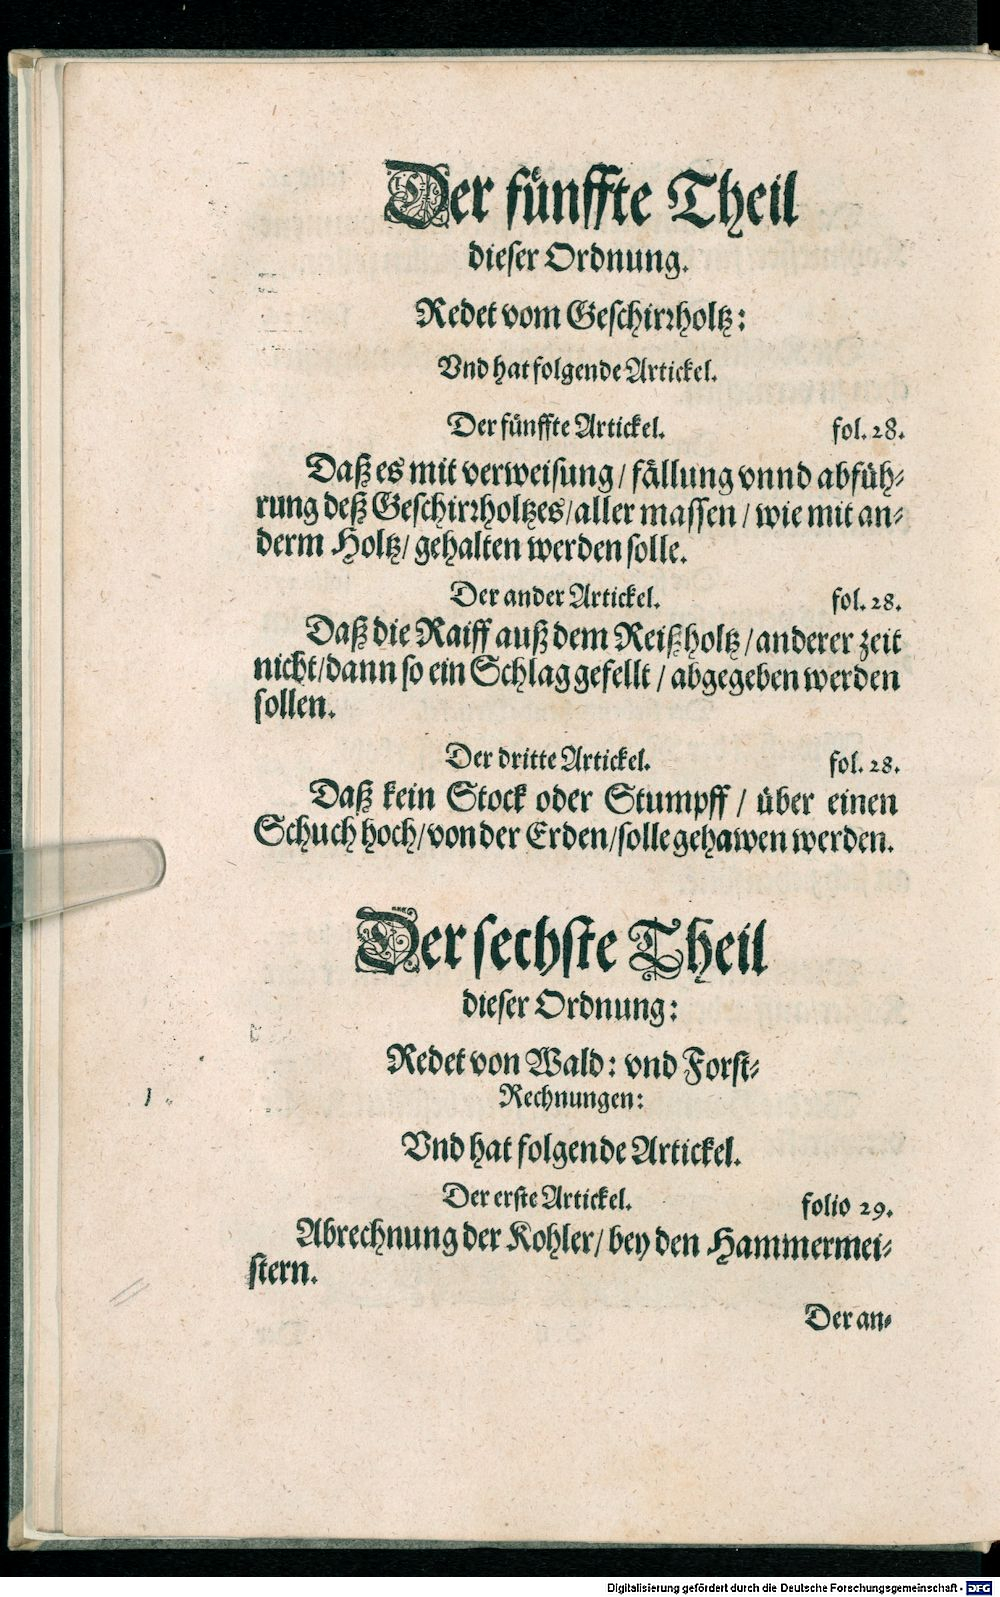 Der fünffte Theil
dieser Ordnung.
Redet vom Geschirrholtz:
Vnd hat folgende Artickel.
Der fünffte Artickel. fol. 28.
Daß es mit verweisung / fällung vnnd abfüh-
rung deß Geschirrholtzes / aller massen / wie mit an-
derm Holtz / gehalten werden solle.
Der ander Artickel. fol. 28.
Daß die Raiff auß dem Reißholtz / anderer zeit
nicht / dann so ein Schlag gefellt / abgegeben werden
sollen.
Der dritte Artickel. fol. 28.
Daß kein Stock oder Stumpff / über einen
Schuch hoch / von der Erden / solle gehawen werden.
Der sechste Theil
dieser Ordnung:
Redet von Wald: vnd Forst-
Rechnungen:
Vnd hat folgende Artickel.
Der erste Artickel. folio 29.
Abrechnung der Kohler / bey den Hammermei-
stern.
Der an-
Digitalisierung gefördert durch die Deutsche Forschungsgemeinschaft - DFG